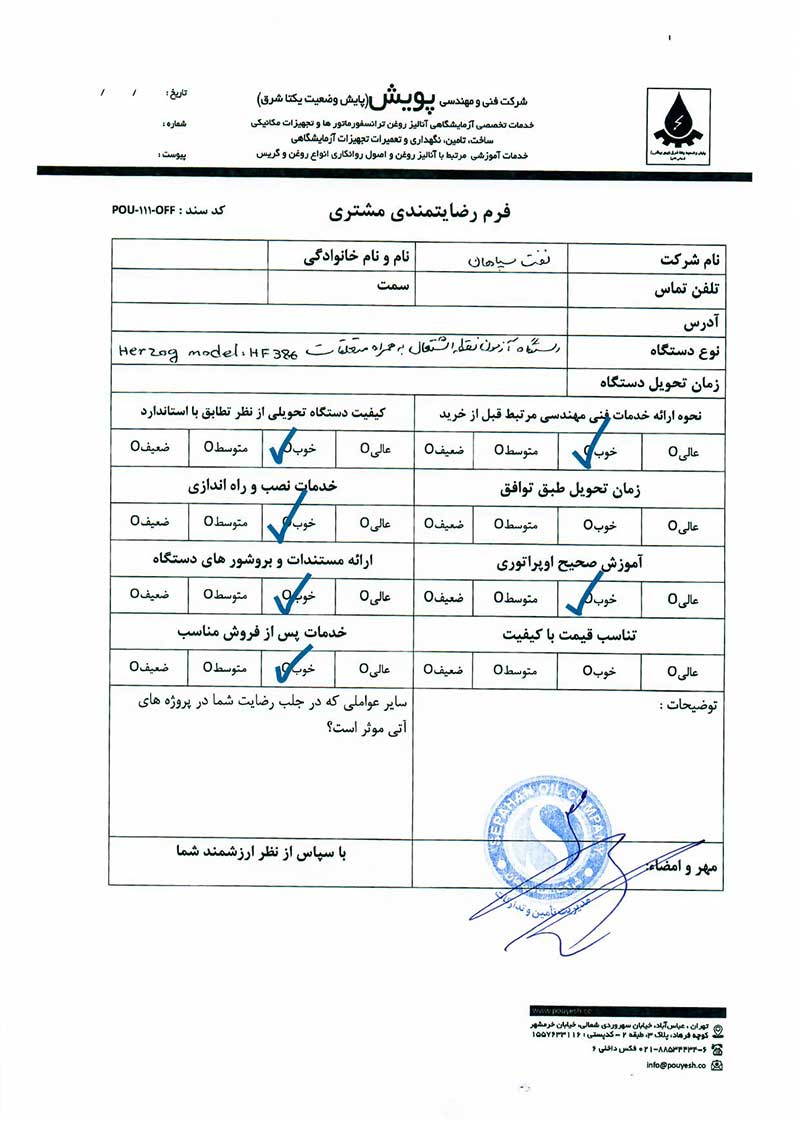 شرکت فنی و مهندسی پویش (پایش وضعیت یکتا شرق)
خدمات تخصصی آزمایشگاهی آنالیز روغن ترانسفورماتور ها و تجهیزات مکانیکی
ساخت، تامین، نگهداری و تعمیرات تجهیزات آزمایشگاهی
خدمات آموزشی مرتبط با آنالیز روغن و اصول روانکاری انواع روغن و گریس
تاریخ : / /
شماره :
پیوست :
فرم رضایتمندی مشتری
کد سند : POU-111-OFF
نام شرکت نفت سپاهان نام و نام خانوادگی
تلفن تماس سمت
آدرس
نوع دستگاه دستگاه آزمون نقطه اشتعال به همراه متعلقات Herzog model: HF386
زمان تحویل دستگاه
نحوه ارائه خدمات فنی مهندسی مرتبط قبل از خرید کیفیت دستگاه تحویلی از نظر تطابق با استاندارد
عالی O خوب O متوسط O ضعیف O عالی O خوب O متوسط O ضعیف O
زمان تحویل طبق توافق خدمات نصب و راه اندازی
عالی O خوب O متوسط O ضعیف O عالی O خوب O متوسط O ضعیف O
آموزش صحیح اوپراتوری ارائه مستندات و بروشور های دستگاه
عالی O خوب O متوسط O ضعیف O عالی O خوب O متوسط O ضعیف O
تناسب قیمت با کیفیت خدمات پس از فروش مناسب
عالی O خوب O متوسط O ضعیف O عالی O خوب O متوسط O ضعیف O
توضیحات :
سایر عواملی که در جلب رضایت شما در پروژه های
آتی موثر است؟
SEPAHAN OIL COMPANY
مدیریت تأمین و تدارکات
مهر و امضاء:
با سپاس از نظر ارزشمند شما
www.pouyesh.co
تهران ، عباس‌آباد، خیابان سهروردی شمالی، خیابان خرمشهر
کوچه فرهاد، پلاک ۳، طبقه ۲ – کدپستی : ۱۵۵۷۶۳۳۱۱۶
۰۲۱-۸۸۵۳۴۴۳۴-۶ فکس داخلی ۶
info@pouyesh.co